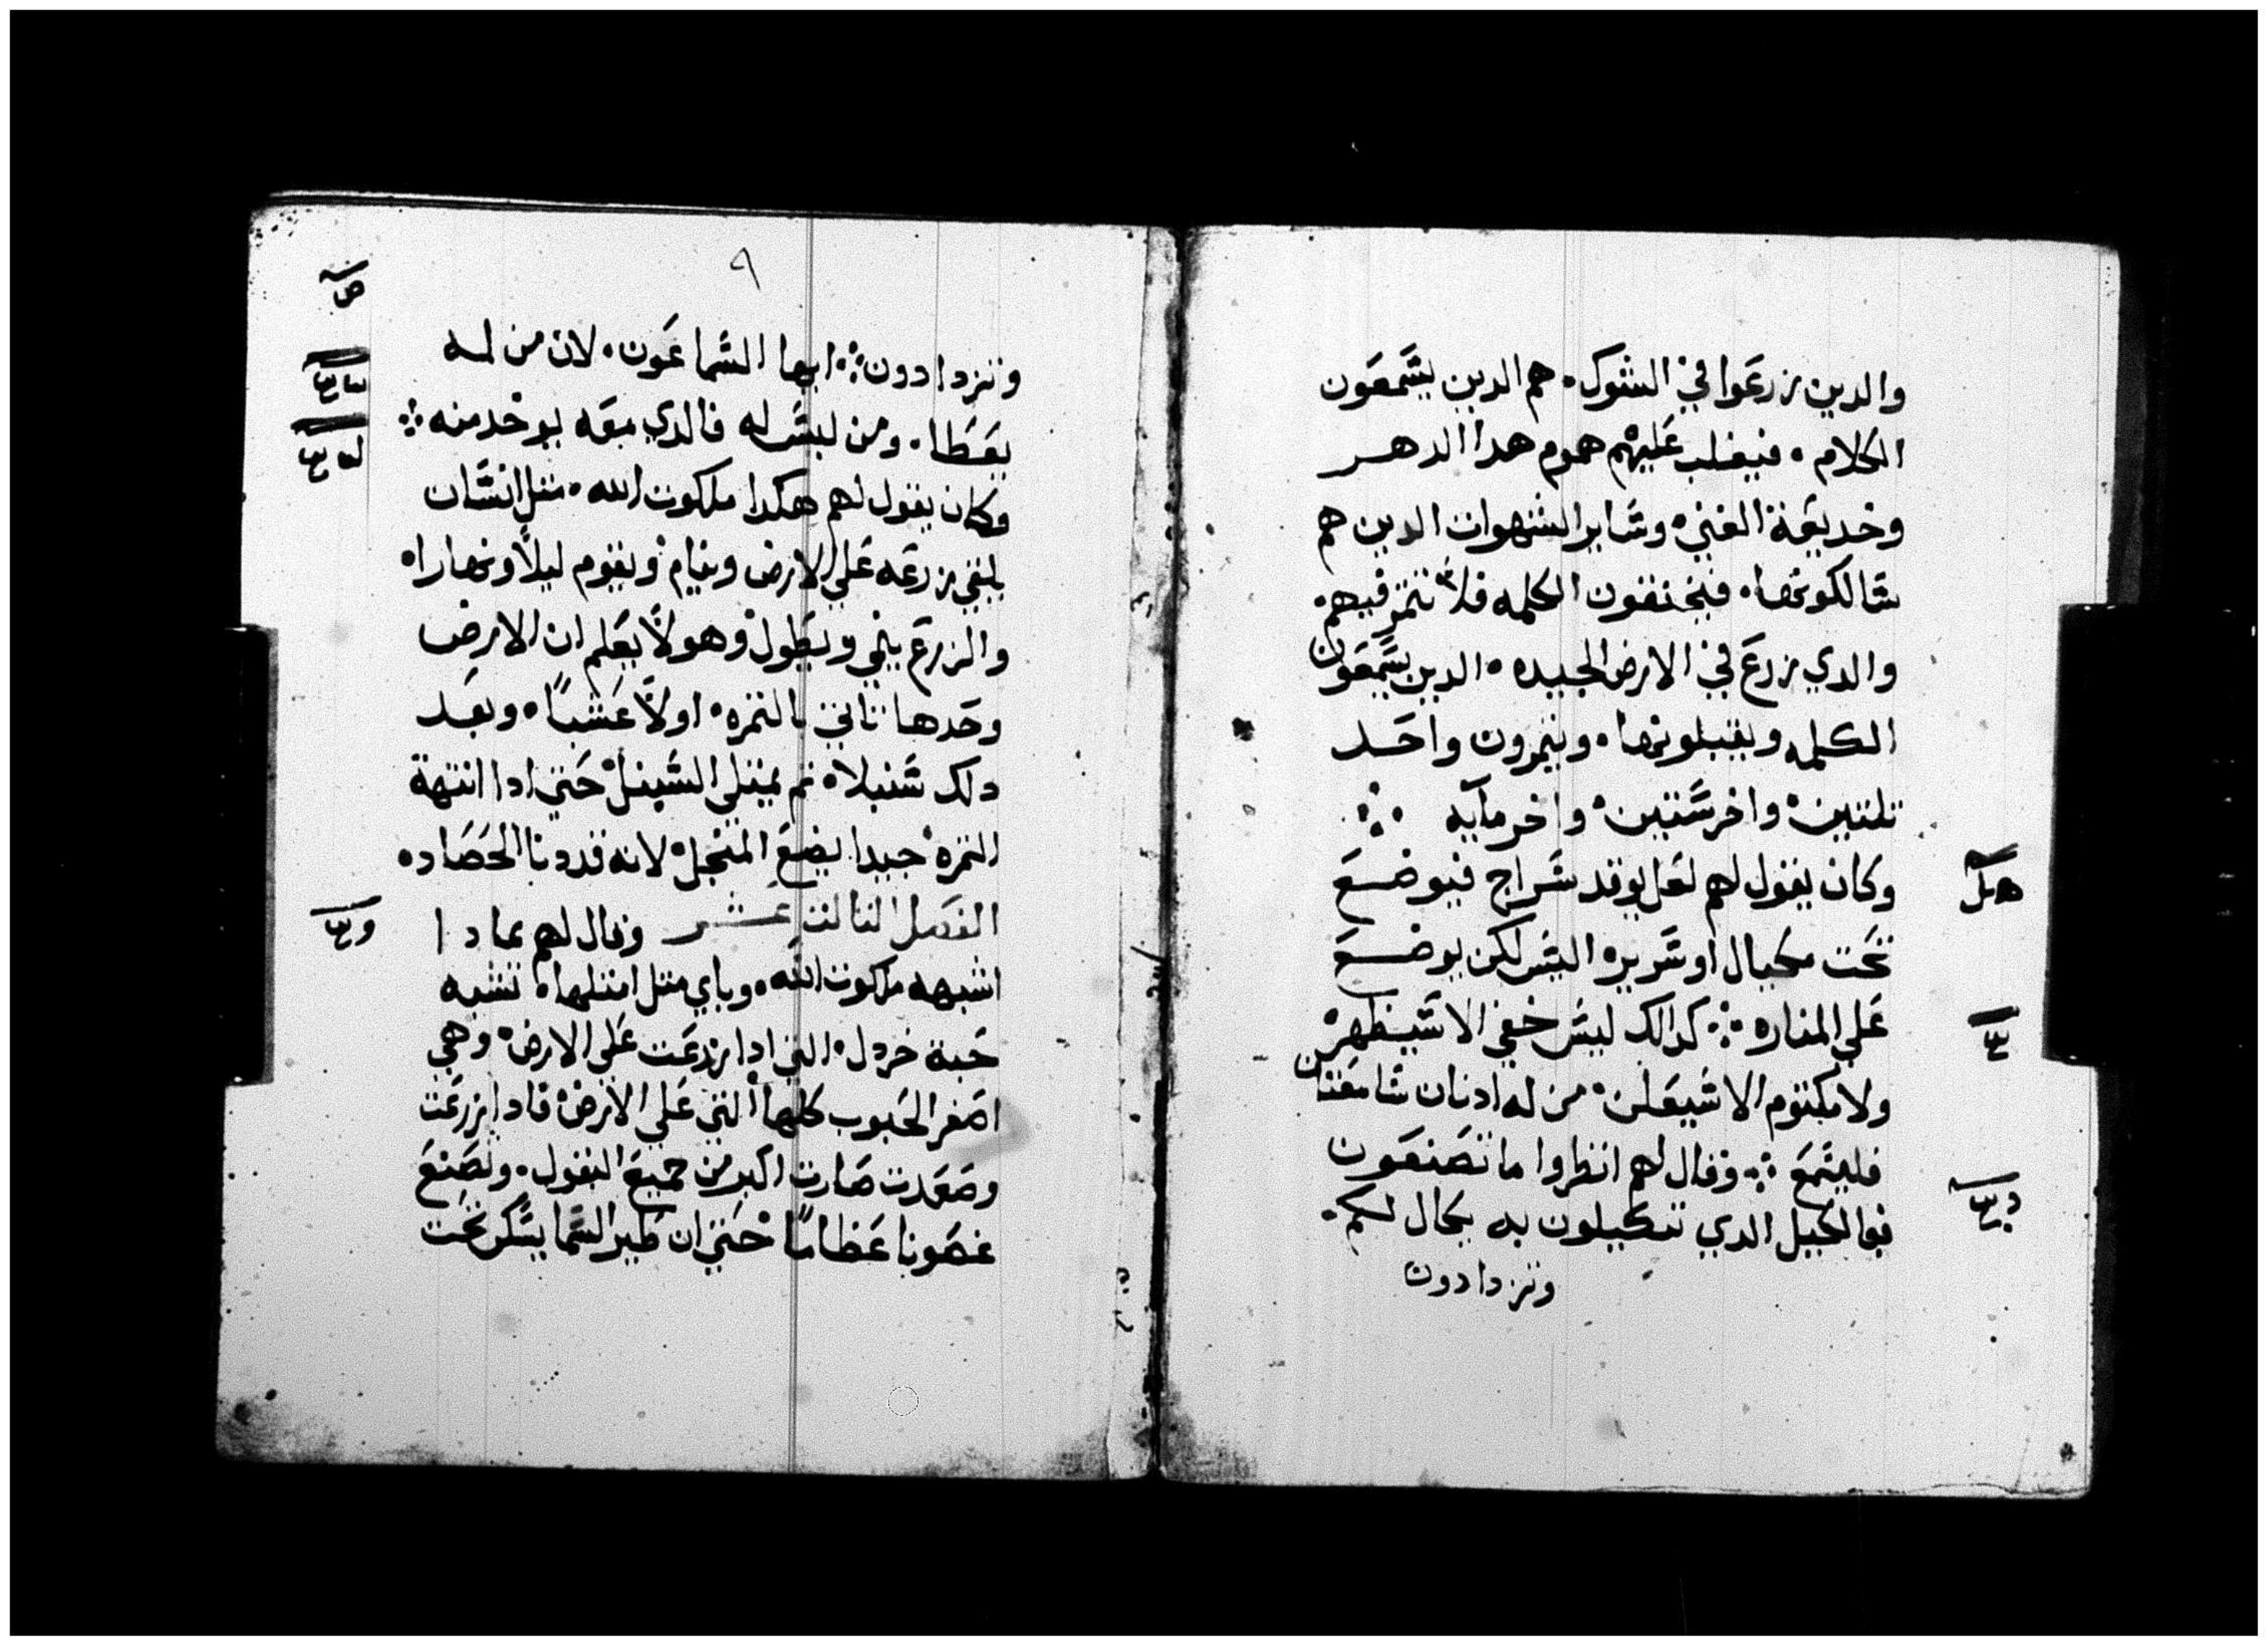 والدين زرعوا في الشوك. هم الدين يسمعون
الكلام. فيغلب عليهم هموم هدا الدهر
وخديعة الغني. وساير الشهوات الدين هم
سالكونها. فيخنقون الكلمه فلا تتمر فيهم.
والدي زرع في الارض الجيده. الدين يسمعون
الكلمه ويقبلونها. ويتمرون واحد
تلتين. واخر ستين. واخر مايه
وكان يقول لهم لعل يوقد سراج فيوضع
تحت مكيال او سريره اليس لكن يوضع
علي المناره كدالك ليس خفي الا سيظهر
ولا مكتوم الا سيعلن. من له ادنان سامعتان
فليسمع وقال لهم انظروا ما تصنعون
فبالكيل الدي تكيلون به يكال لكم.
وتزدادون
٩
وتزدادون ايها السماعون. لان من له
يعطا. ومن ليس له فالدي معه يوخد منه
وكان يقول لهم هكدا ملكوت الله. متل انسان
يلقي زرعه علي الارض وينام ويقوم ليلاً ونهارا.
والزرع ينمي ويطول وهو لا يعلم ان الارض
وحدها تاتي بالتمره. اولاً عشباً. وبعد
دلك سنبلا. تم يمتلي السنبل حتي ادا انتهة
التمره جيدا يضع المنجل لانه قد دنا الحصاد.
الفصل التالت عشر وقال لهم بمادا
اشبه ملكوت الله. وباي متل امتلها. تشبه
حبة خردل. التي ادا زرعت علي الارض. وهي
اصغر الحبوب كلها التي علي الارض. فادا زرعت
وصعدت صارت اكبر من جميع البقول. وتصنع
غصونا عظاماً حتي ان طير السما يسكن تحت